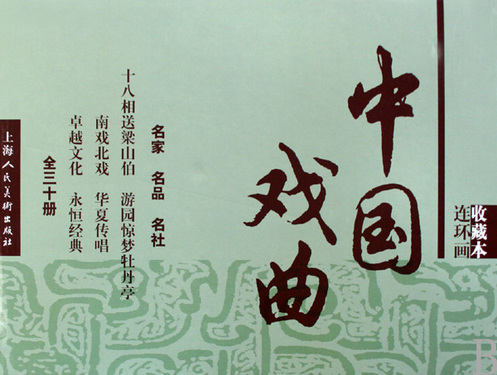 中国
戏曲
收藏本
连环画
名家 名品 名社
十八相送梁山伯 游园惊梦牡丹亭
南戏北戏 华夏传唱
卓越文化 永恒经典
全三十册
上海人民美術出版社
B